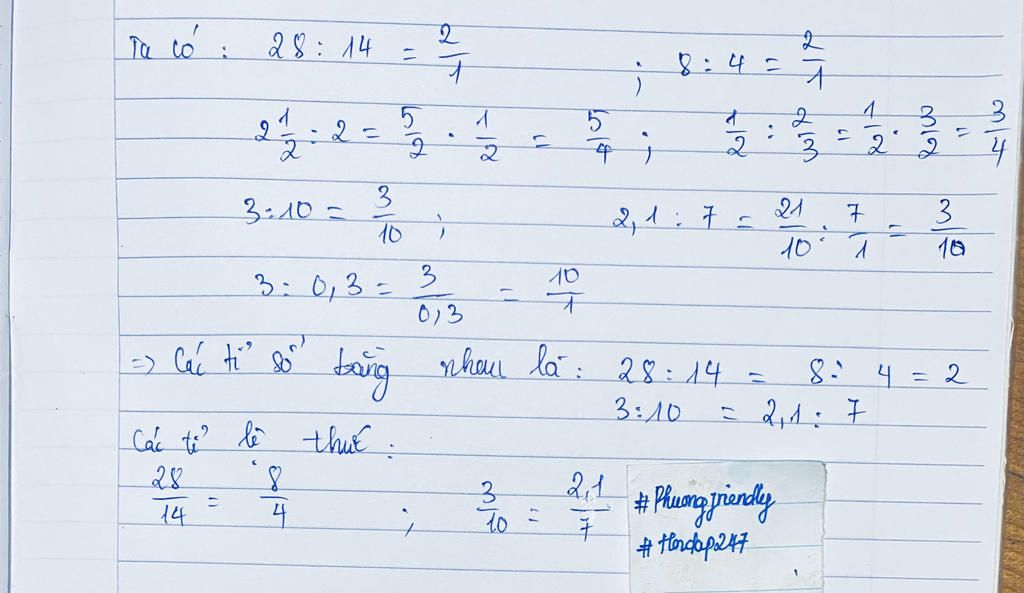 Ta có : 28 : 14 = 2/1 ; 8 : 4 = 2/1
2 1/2 : 2 = 5/2 . 1/2 = 5/4 ; 1/2 : 2/3 = 1/2 . 3/2 = 3/4
3 : 10 = 3/10 ; 2,1 : 7 = 21/10 : 7/1 = 3/10
3 : 0,3 = 3/0,3 = 10/1
=> Các tỉ số bằng nhau là : 28 : 14 = 8 : 4 = 2
3 : 10 = 2,1 : 7
Các tỉ lệ thức :
28/14 = 8/4 ; 3/10 = 2,1/7
#Phuongfriendly
#Hoidap247